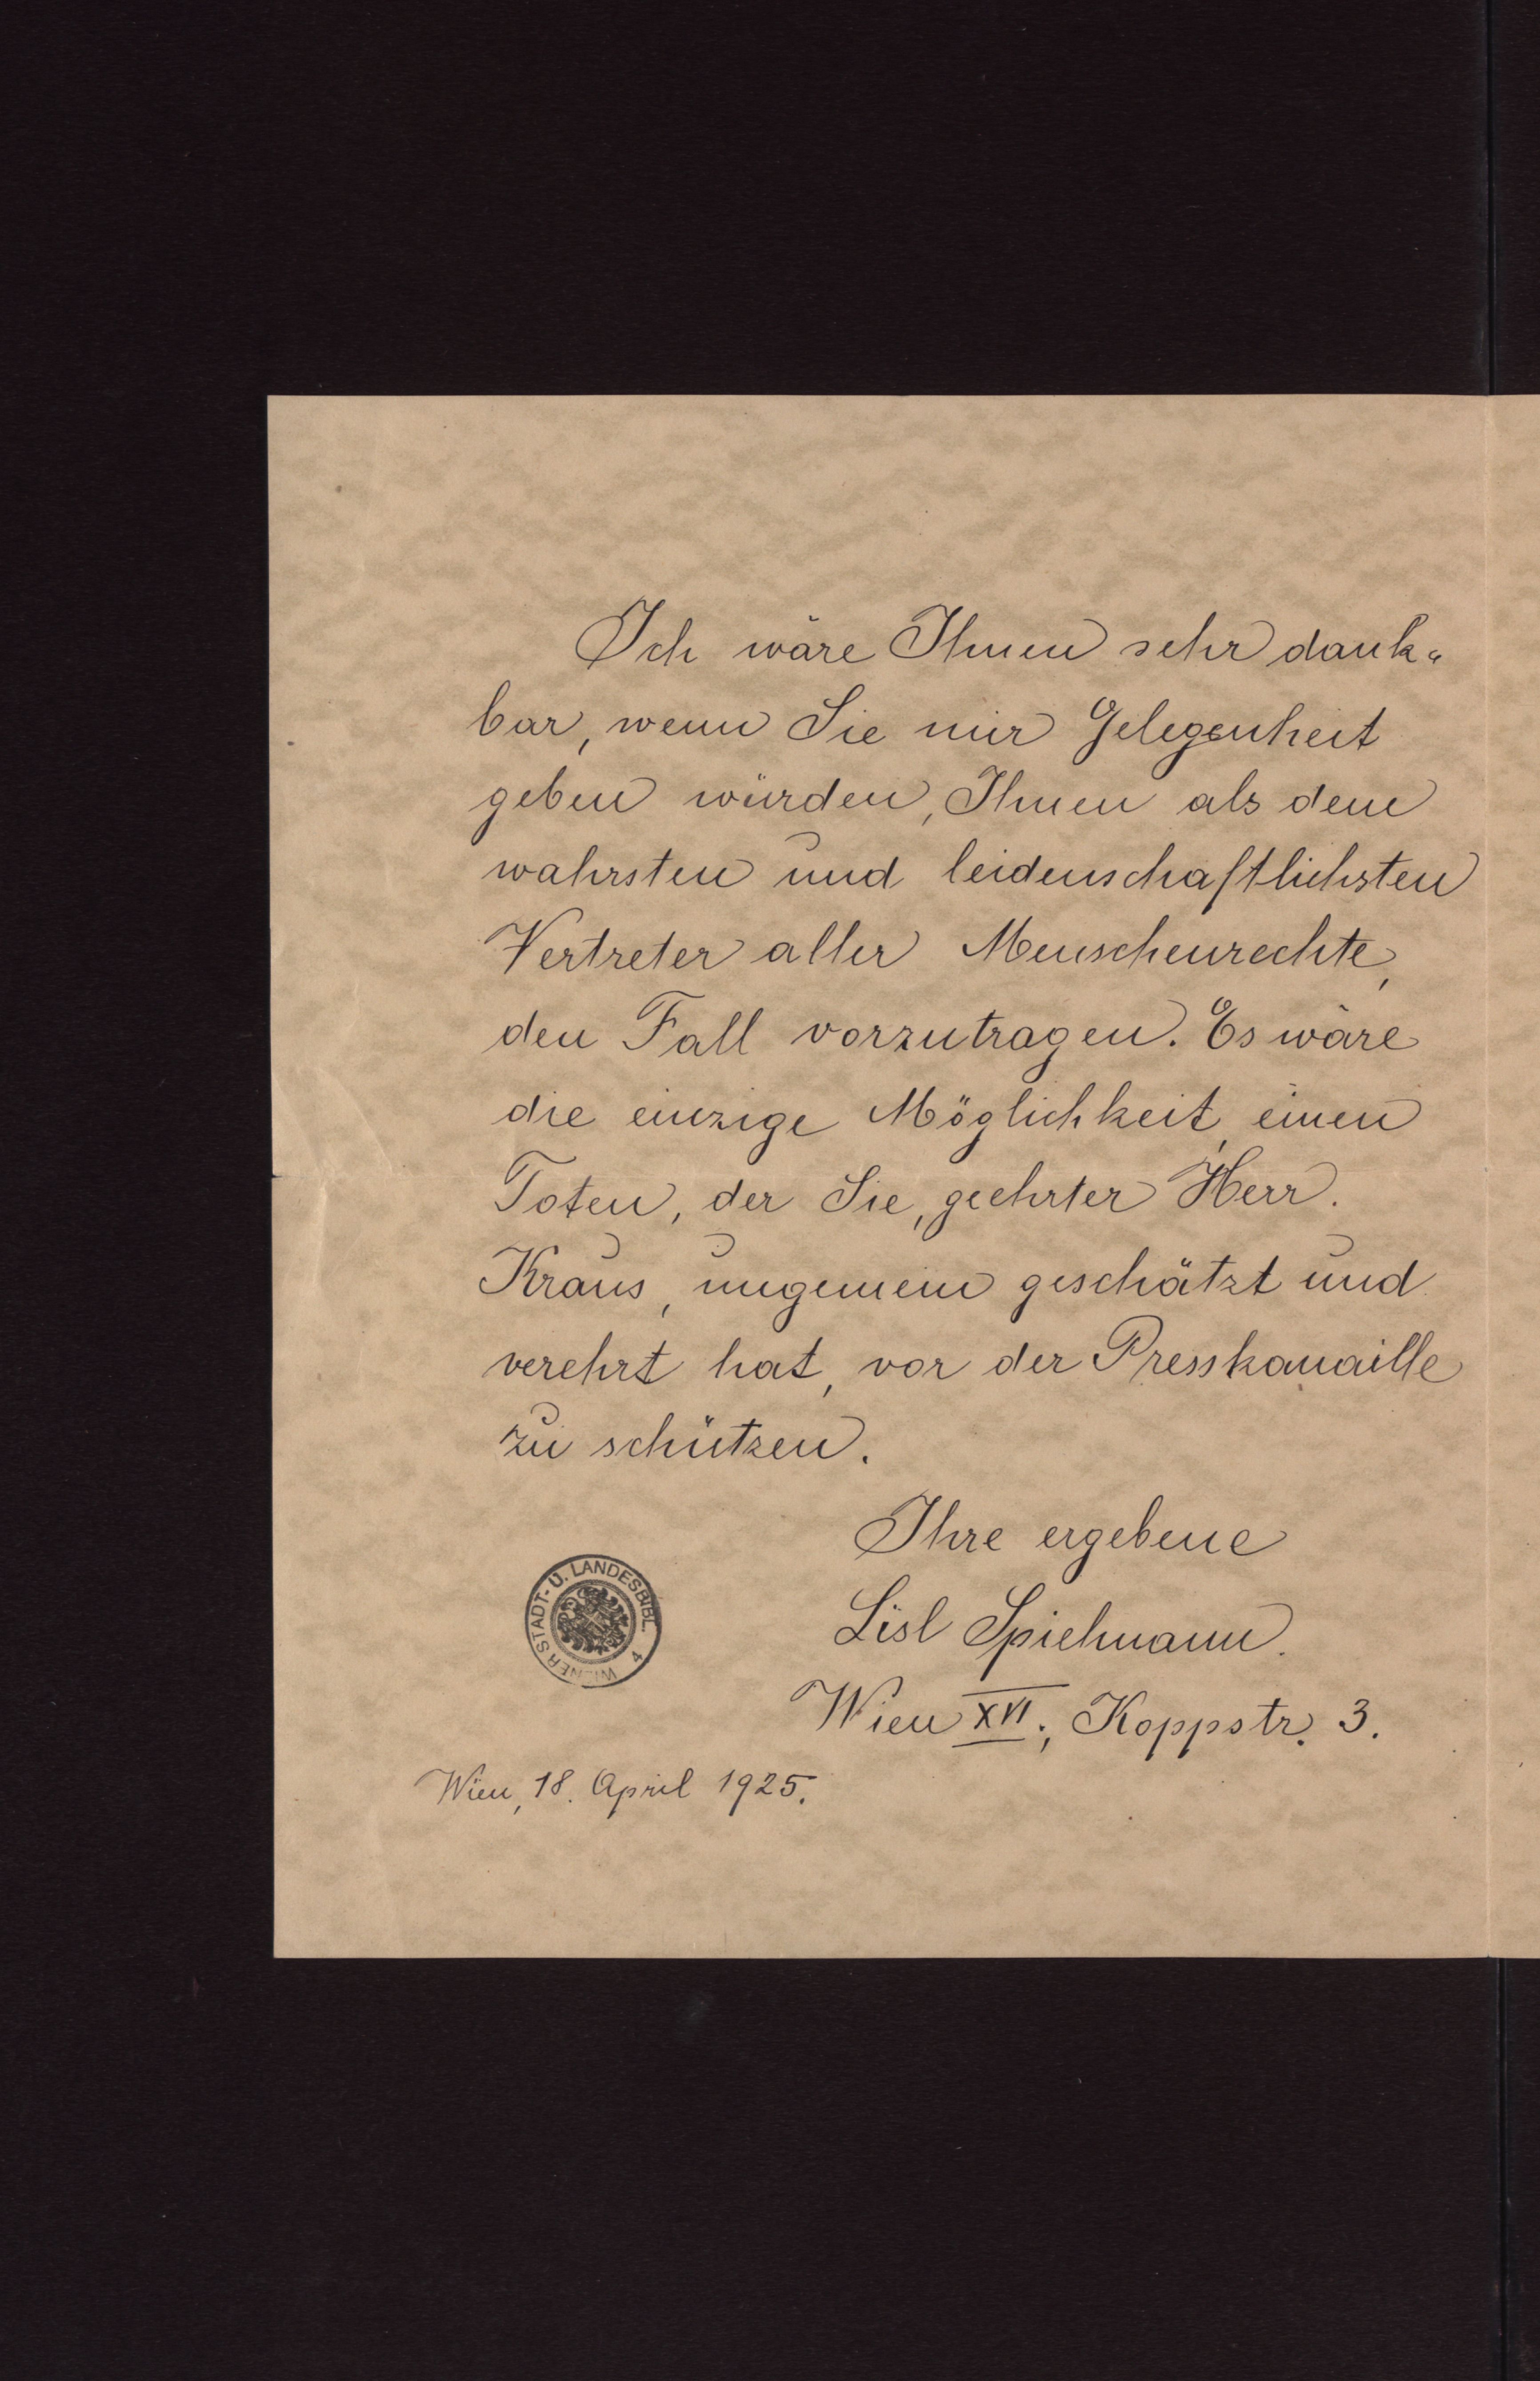 Ich wäre Ihnen sehr dank-
bar, wenn Sie mir Gelegenheit
geben würden, Ihnen als dem
wahrsten und leidenschaftlichsten
Vertreter aller Menschenrechte,
den Fall vorzutragen. Es wäre
die einzige Möglichkeit, einen
Toten, der Sie, geehrter Herr.
Kraus, ungemein geschätzt und
verehrt hat, vor der Presskanaille
zu schützen.
Ihre ergebene
Lisl Spielmann.
Wien XVI., Koppstr. 3.
Wien, 18. April 1925.
WIENER STADT- U. LANDESBIBL. 4